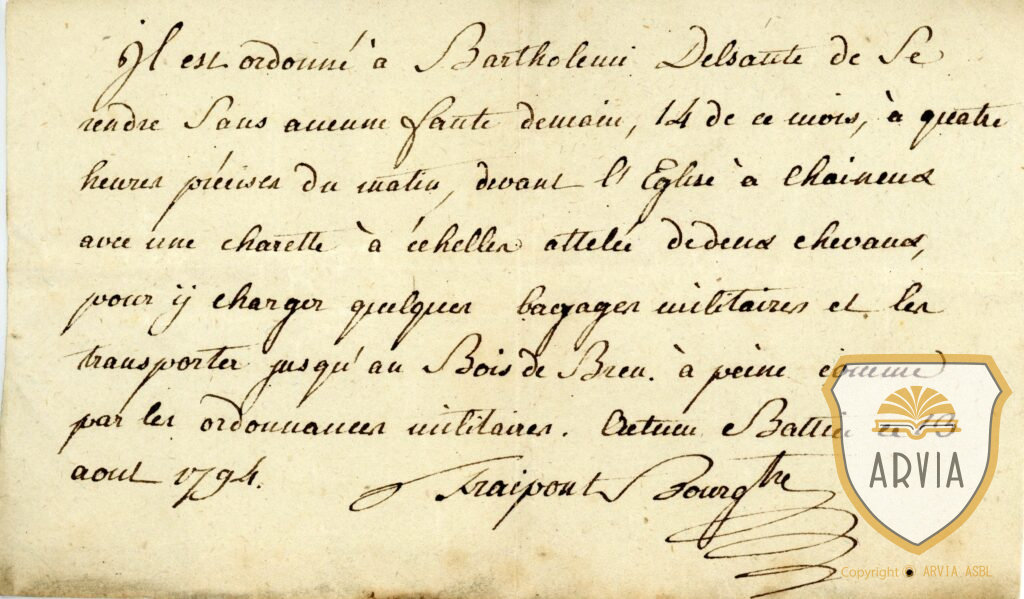 Il est ordonné à Bartholemi Delsaute de Se
rendre Sans aucune faute demain, 14 de ce mois, à quatre
heures précises du matin, devant l'Eglise à Chaineux
avec une charette à échelles attelée de deux chevaux,
pour ÿ charger quelques bagages militaires et les
transporter jusqu'au Bois de Breu. à peine comme
par les ordonnances militaires. Battice ce 13
aout 1794.
Fraipont Bourgtre
ARVIA
Copyright ARVIA ASBL